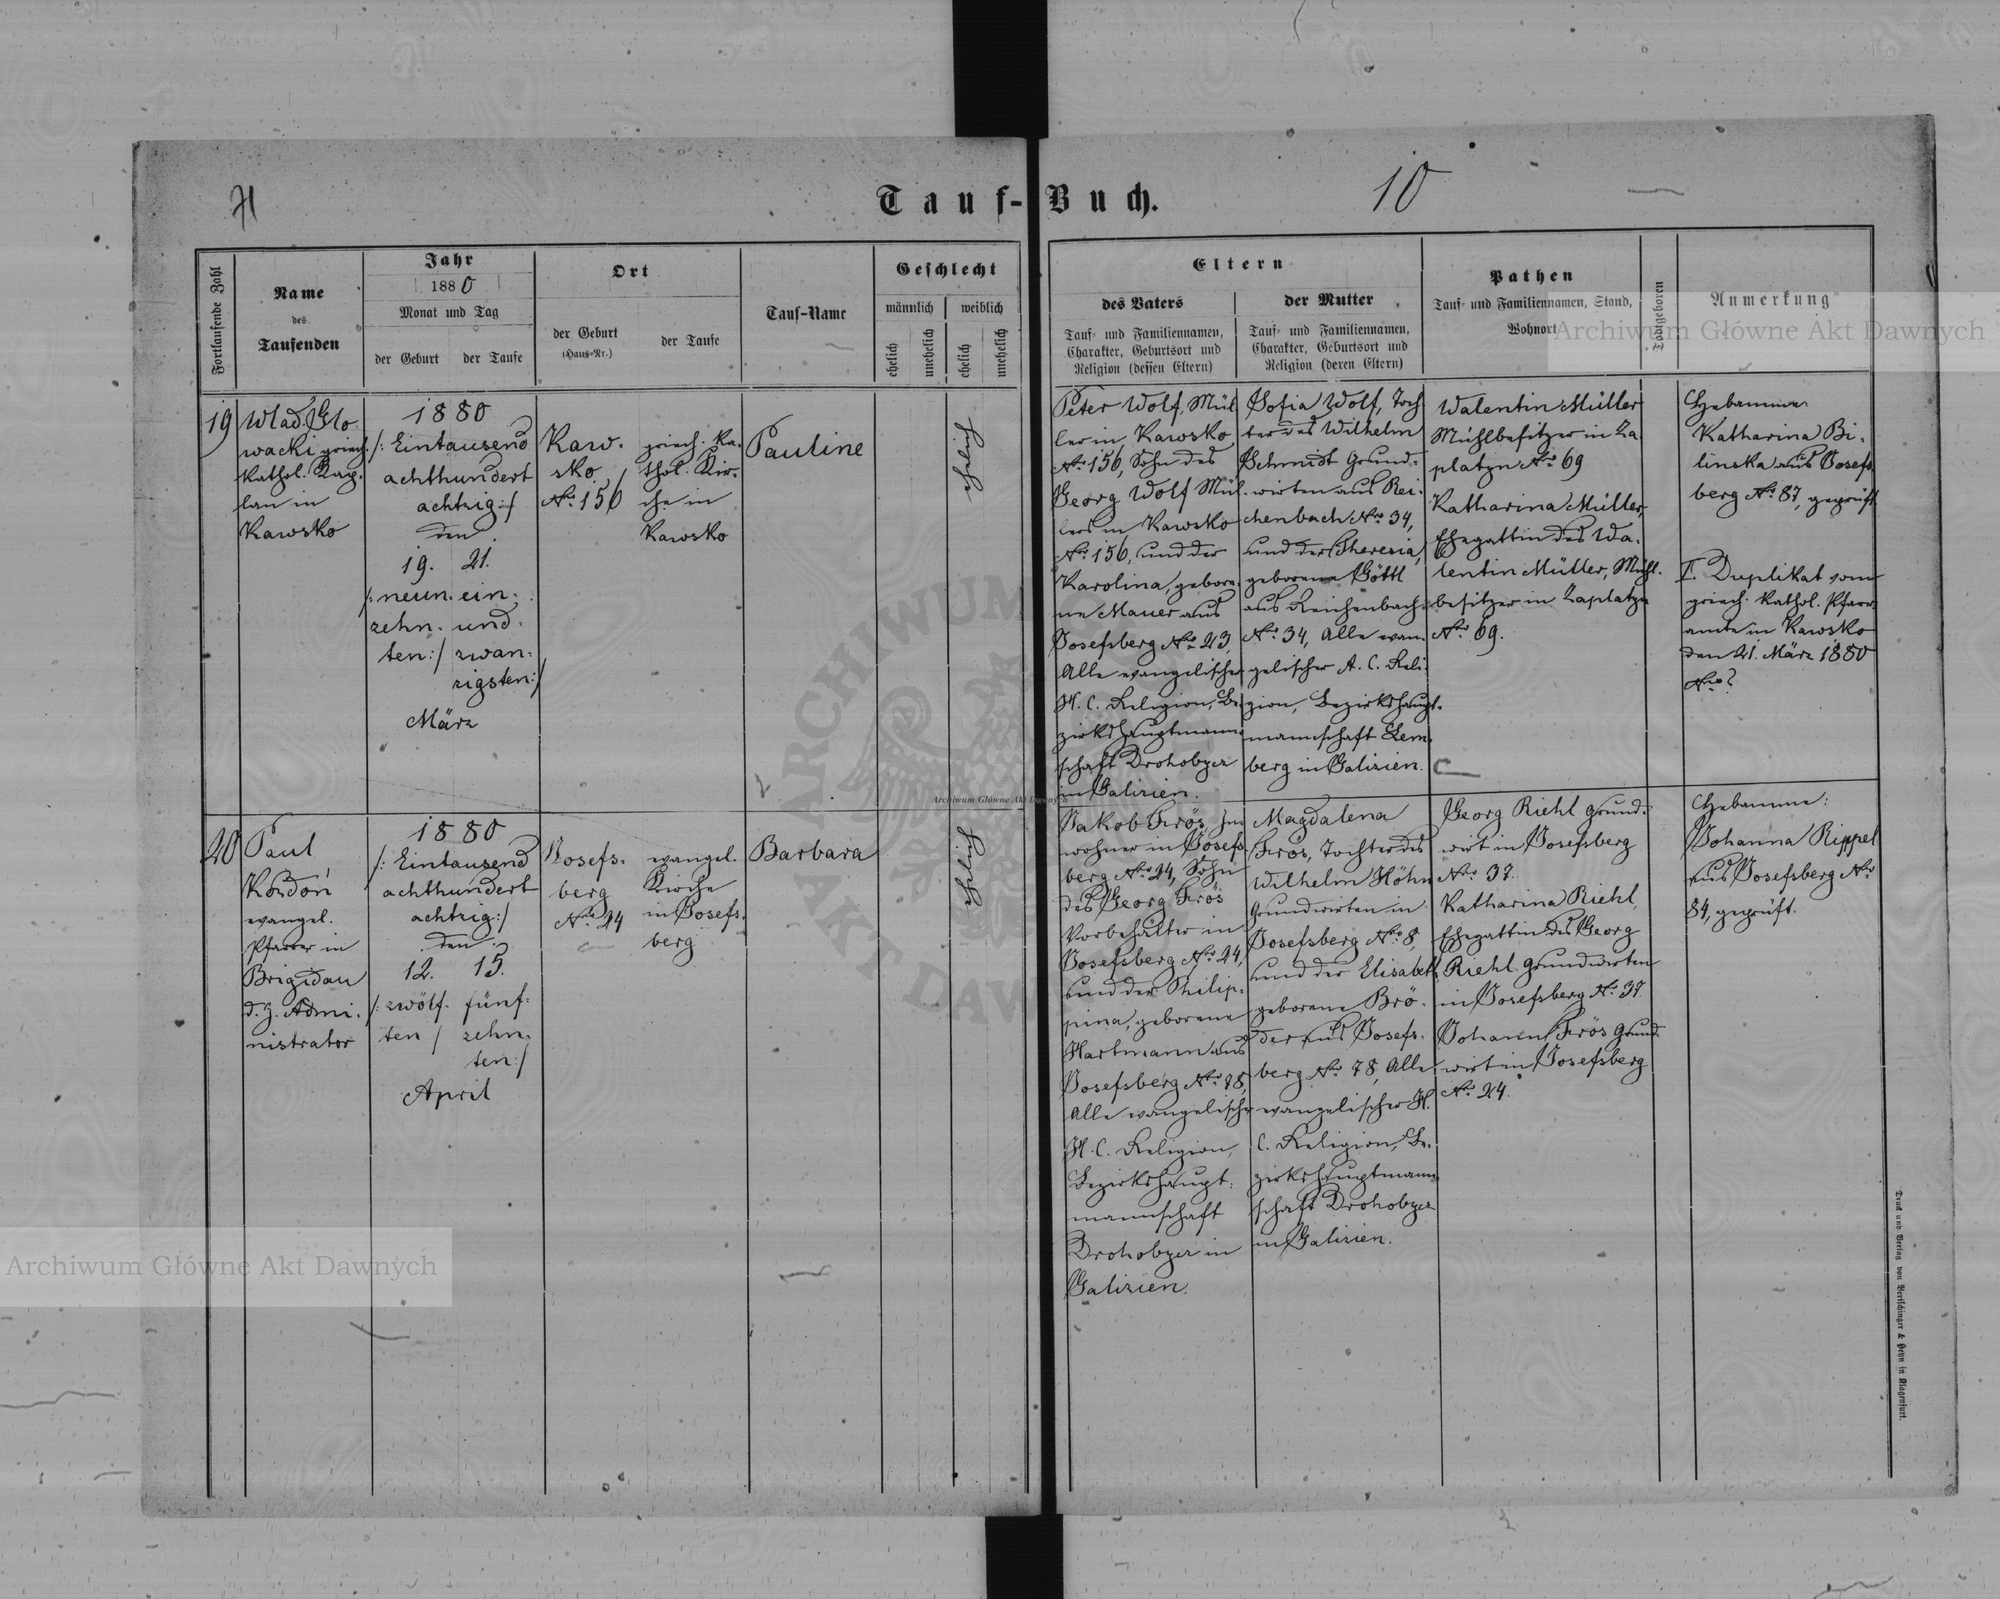 H
Tauf-Buch.
10
Fortlaufende Zahl
Name
des
Taufenden
Jahr
1880
Monat und Tag
der Geburt
der Taufe
Ort
der Geburt
(Haus-Nr.)
der Taufe
Tauf-Name
Geschlecht
männlich
weiblich
ehelich
unehelich
ehelich
unehelich
Eltern
des Vaters
Tauf- und Familiennamen,
Charakter, Geburtsort und
Religion (dessen Eltern)
der Mutter
Tauf- und Familiennamen,
Charakter, Geburtsort und
Religion (deren Eltern)
Pathen
Tauf- und Familiennamen, Stand,
Wohnort
Todtgeboren
Anmerkung
19
Wlad. Glo-
wacki griech.
kathol. Kap-
lan in
Kawsko
1880
/: Eintausend
achthundert
achtzig :/
den
19. 21.
/: neun- ein-
zehn- und-
ten :/ zwan-
zigsten :/
März
Kaw-
sko
No 156
griech. Ka-
thol. Kir-
che in
Kawsko
Pauline
ehelich
Peter Wolf, Mül-
ler in Kawsko
No 156, Sohn des
Georg Wolf Mül-
lers in Kawsko
No 156, und der
Karolina, gebore-
ne Mauer aus
Josefsberg No 23,
Alle evangelischer
H. C. Religion, Be-
zirkshauptmann-
schaft Drohobycz
in Galizien.
Sofia Wolf, Toch-
ter des Wilhelm
Schmidt Grund-
wirten aus Rei-
chenbach No 34,
und der Theresia,
geborene Göttl
aus Reichenbach
No 34, Alle evan-
gelischer A. C. Reli-
gion, Bezirkshaupt-
mannschaft Lem-
berg in Galizien.
Walentin Müller
Mühlbesitzer in Za-
platyn No 69
Katharina Müller,
Ehegattin des Wa-
lentin Müller, Mühl-
besitzer in Zaplatyn
No 69.
Hebamme:
Katharina Bi-
linska aus Josefs-
berg No 87, geprüft
I. Duplikat vom
griech. kathol. Pfarr-
amte in Kawsko
den 21. März 1880
No 2
20
Paul
Kordon
evangel.
Pfarrer in
Brigidau
d. z. Admi-
nistrator
1880
/: Eintausend
achthundert
achtzig :/
den
12. 15.
/: zwölf- fünf-
ten / zehn-
ten :/
April
Josefs-
berg
No 24
evangel.
Kirche
in Josefs-
berg
Barbara
ehelich
Jakob Frös In-
wohner in Josefs-
berg No 24, Sohn
des Georg Frös
Vorbehälter in
Josefsberg No 24,
und der Philip-
pina, geborene
Hartmann aus
Josefsberg No 78,
Alle evangelischer
H. C. Religion,
Bezirkshaupt-
mannschaft
Drohobycz in
Galizien.
Magdalena
Frös, Tochter des
Wilhelm Höhn
Grundwirten in
Josefsberg No 8,
und der Elisabeth
geborene Brö-
der aus Josefs-
berg No 78, Alle
evangelischer H.
C. Religion, Be-
zirkshauptmann-
schaft Drohobycz
in Galizien.
Georg Riehl Grund-
wirt in Josefsberg
No 37.
Katharina Riehl,
Ehegattin des Georg
Riehl Grundwirten
in Josefsberg No 37.
Johann Frös Grund-
wirt in Josefsberg
No 24.
Hebamme:
Johanna Rippel
aus Josefsberg No
84, geprüft.
Druck und Verlag von Bertschinger & Heyn in Klagenfurt.
Archiwum Główne Akt Dawnych
Archiwum Główne Akt Dawnych
Archiwum Główne Akt Dawnych
ARCHIWUM
AKT DAW